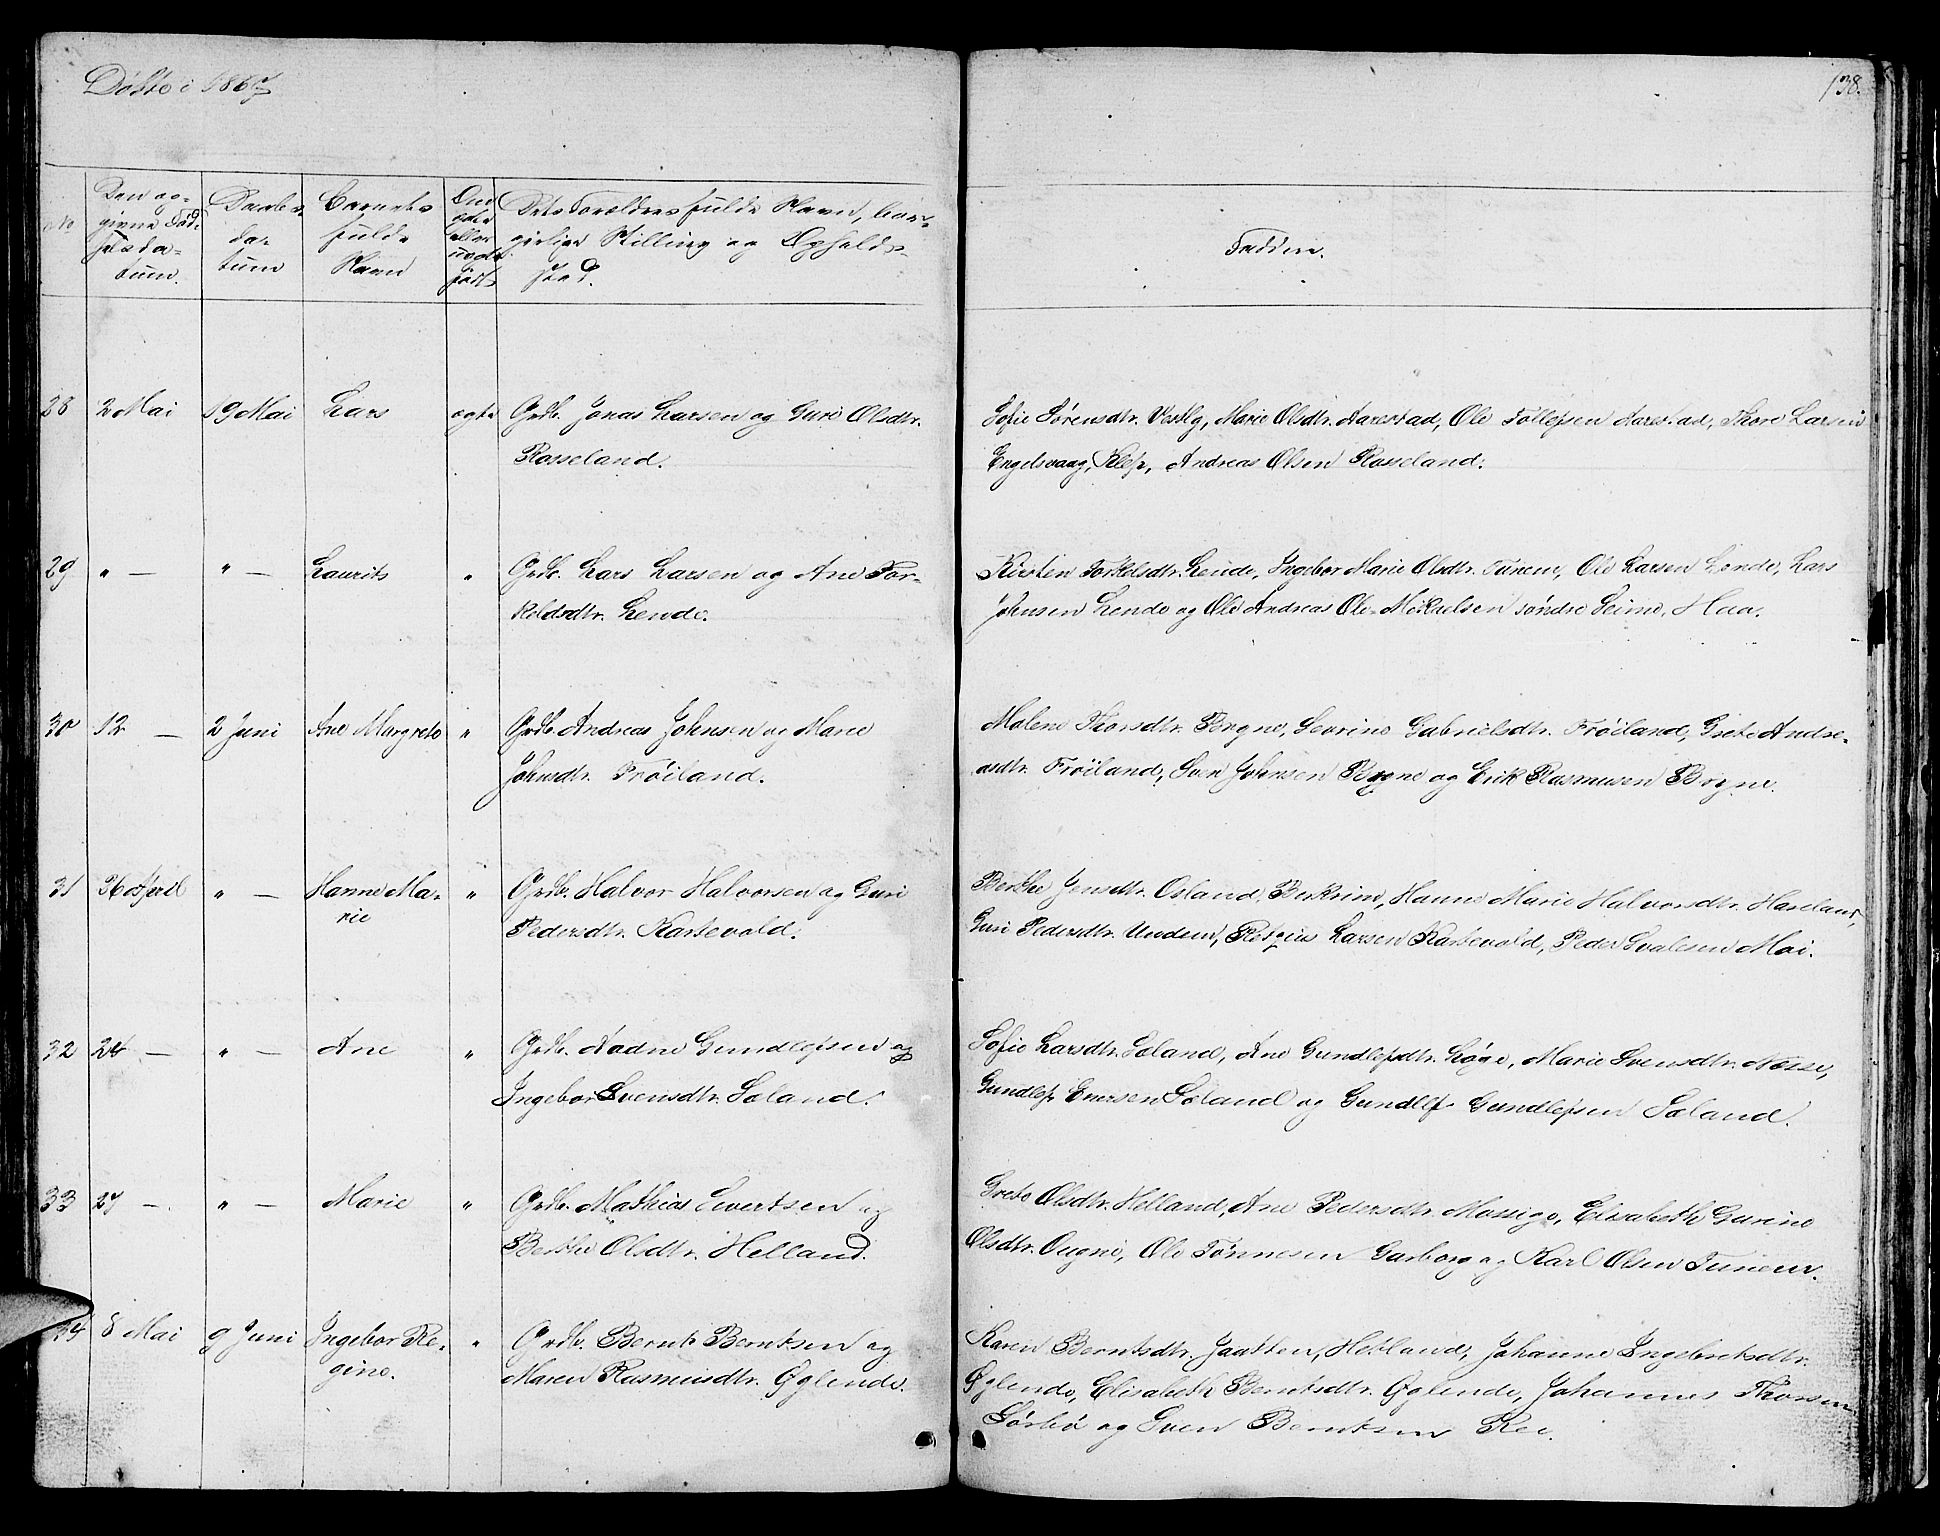 Døbte i 1867
138.
No
Den op-
givne Fød-
selsda-
tum.
Daabs-
da-
tum
Barnets
fulde
Navn
Om
ægte
eller
uægte
født
Dets Forældres fulde Navn, bor-
gerlige Stilling og Opholds-
sted.
Faddere.
28 2 Mai 19 Mai Lars ægte Grdb. Jonas Larsen og Guri Olsdtr.
Rosseland.
Sofie Sörensdtr. Vestly, Marie Olsdtr. Aarestad, Ole Tollefsen Aarestad, Thore Larsen
Engelsvaag, Klep, Andreas Olsen Rosseland.
29 " — " — Laurits " Grdb. Lars Larsen og Ane Tor-
keldsdtr. Lende.
Kirsten Torkelsdtr. Lende, Ingebor Marie Olsdtr. Tunem, Ole Larsen Lende, Lars
Johnsen Lende og Ole Andreas Ole Mikaelsen söndre Seime, Haa.
30 12 — 2 Juni Ane Margrete " Grdb. Andreas Johnsen og Marie
Johnsdtr. Fröiland.
Malene Thorsdtr. Brÿne, Severine Gabrielsdtr. Fröiland, Grete Andre-
asdtr. Fröiland, Sven Johnsen Bryne og Erik Rasmusen Bryne.
31 26 April " — Hanne Ma-
rie " Grdb. Halvor Halvorsen og Guri
Pedersdtr. Kartevold.
Berthe Jensdtr. Osland, Birkrim, Hanne Marie Halvorsdtr. Haveland,
Guri Pedersdtr. Undem, Larsen Kartevold, Peder Svalesen Moi.
32 24 — " — Ane " Grdb. Aadne Gundlefsen og
Ingebor Svensdtr. Soland.
Sofie Larsdtr. Soland, Ane Gundlefsdtr. Lÿge, Marie Svensdtr. Nesse,
Gundlef Enersen Soland og Gundlef Gundlefsen Soland.
33 27 — " — Marie " Grdb. Mathias Evertsen og
Berthe Olsdtr. Helland.
Grete Olsdtr. Helland, Ane Pedersdtr. Mossige, Elisabeth Gurine
Olsdtr. Ougne, Ole Tönnesen Garborg og Karl Olsen Tunem.
34 8 Mai 9 Juni Ingebor Re-
gine. " Grdb. Bernt Berntsen og
Maren Rasmusdtr. Øglende.
Karen Berntsdtr. Jaatten, Hetland, Johanne Ingebretsdtr.
Øglende, Elisabeth Berntsdtr. Øglende, Johannes Thorsen
Sörbö og Sven Berntsen Ree.